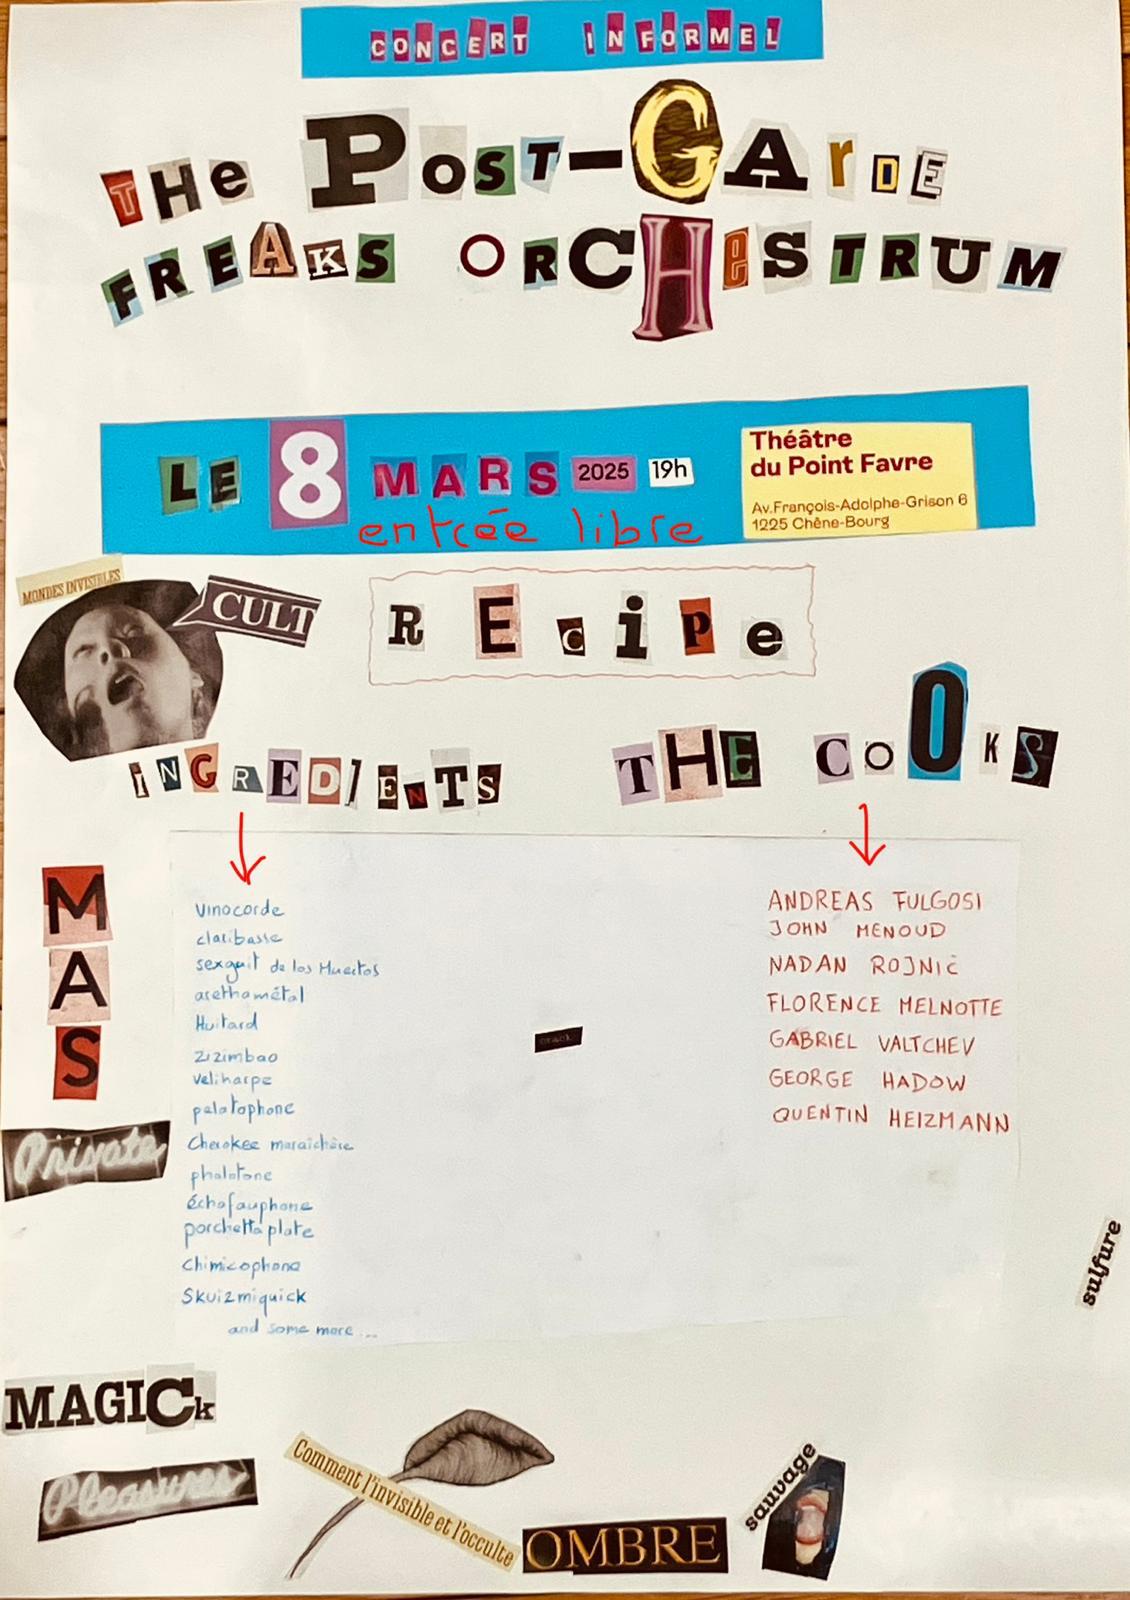 CONCERT INFORMEL
THe POST-GArDE
FREAKS OrCHeSTRUM
LE 8 MARS 2025 19h
entrée libre
Théâtre
du Point Favre
Av.François-Adolphe-Grison 6
1225 Chêne-Bourg
MONDES INVISIBLES
CULT
REciPe
iNGREDIENTS
THE COOKS
vinocorde
claribasse
sexguit de los Muertos
arethamétal
Huitard
zizimbao
veliharpe
palatophone
Cherokee maraîchère
phalotone
échafauphone
porchetta plate
Chimicophone
Skuizmiquick
and some more ...
ANDREAS FULGOSI
JOHN MENOUD
NADAN ROJNIČ
FLORENCE MELNOTTE
GABRIEL VALTCHEV
GEORGE HADOW
QUENTIN HEIZMANN
MAS
Private
sulfure
MAGICk
Pleasures
Comment l'invisible et l'occulte
OMBRE
sauvage